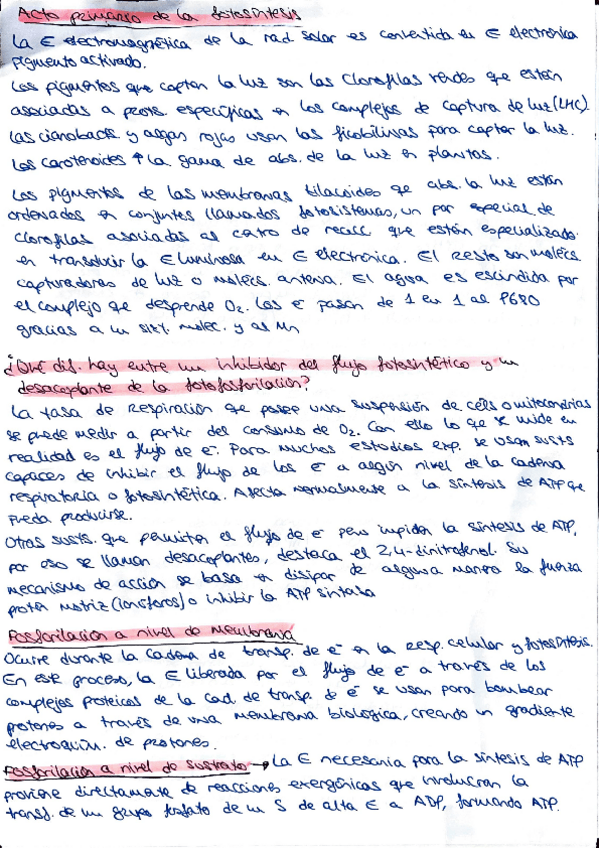 Acto primario de la fotosíntesis
La E electromagnética de la rad. solar es convertida en E electrónica
Pigmento activado.
Los pigmentos que captan la luz son las Clorofilas verdes que están
asociadas a prots. específicas en los complejos de captura de luz (LHC).
Las cianobact. y algas rojas usan las ficobilinas para captar la luz.
Los carotenoides ↑ la gama de abs. de la luz en plantas.
Los pigmentos de las membranas tilacoides qe abs. la luz están
ordenados en conjuntos llamados fotosistemas, un par especial de
clorofilas asociadas al catro de reacc que están especializado.
en transducir la E luminosa en E electrónica. El resto son molécs.
capturadoras de luz o molécs. antena. El agua es escindida por
el complejo qe desprende O₂. Los e⁻ pasan de 1 en 1 al P680
gracias a un sist. molec. y al Mn
¿Qué dif. hay entre un inhibidor del flujo fotosintético y un
desacoplante de la fotofosforilación?
La tasa de respiración qe posee una suspensión de céls o mitocondrias
se puede medir a partir del consumo de O₂. Con ello lo qe se mide en
realidad es el flujo de e⁻. Para muchos estudios exp. se usan susts
capaces de inhibir el flujo de los e⁻ a algún nivel de la cadena
respiratoria o fotosintética. Afecta normalmente a la síntesis de ATP qe
pueda producirse.
Otras susts. que permiten el flujo de e⁻ pero impiden la síntesis de ATP,
por eso se llaman desacoplantes, destaca el 2,4-dinitrofenol. Su
mecanismo de acción se basa en disipar de alguna manera la fuerza
protón motriz (ionóforos) o inhibir la ATP sintasa
Fosforilación a nivel de membrana
Ocurre durante la cadena de transp. de e⁻ en la resp. celular y fotosíntesis.
En este proceso, la E liberada por el flujo de e⁻ a través de los
complejos proteicos de la cad. de transp. de e⁻ se usan para bombear
protones a través de una membrana biológica, creando un gradiente
electroquím. de protones.
Fosforilación a nivel de sustrato → La E necesaria para la síntesis de ATP
proviene directamente de reacciones exergónicas que involucran la
transf. de un grupo fosfato de un S de alta E a ADP, formando ATP.